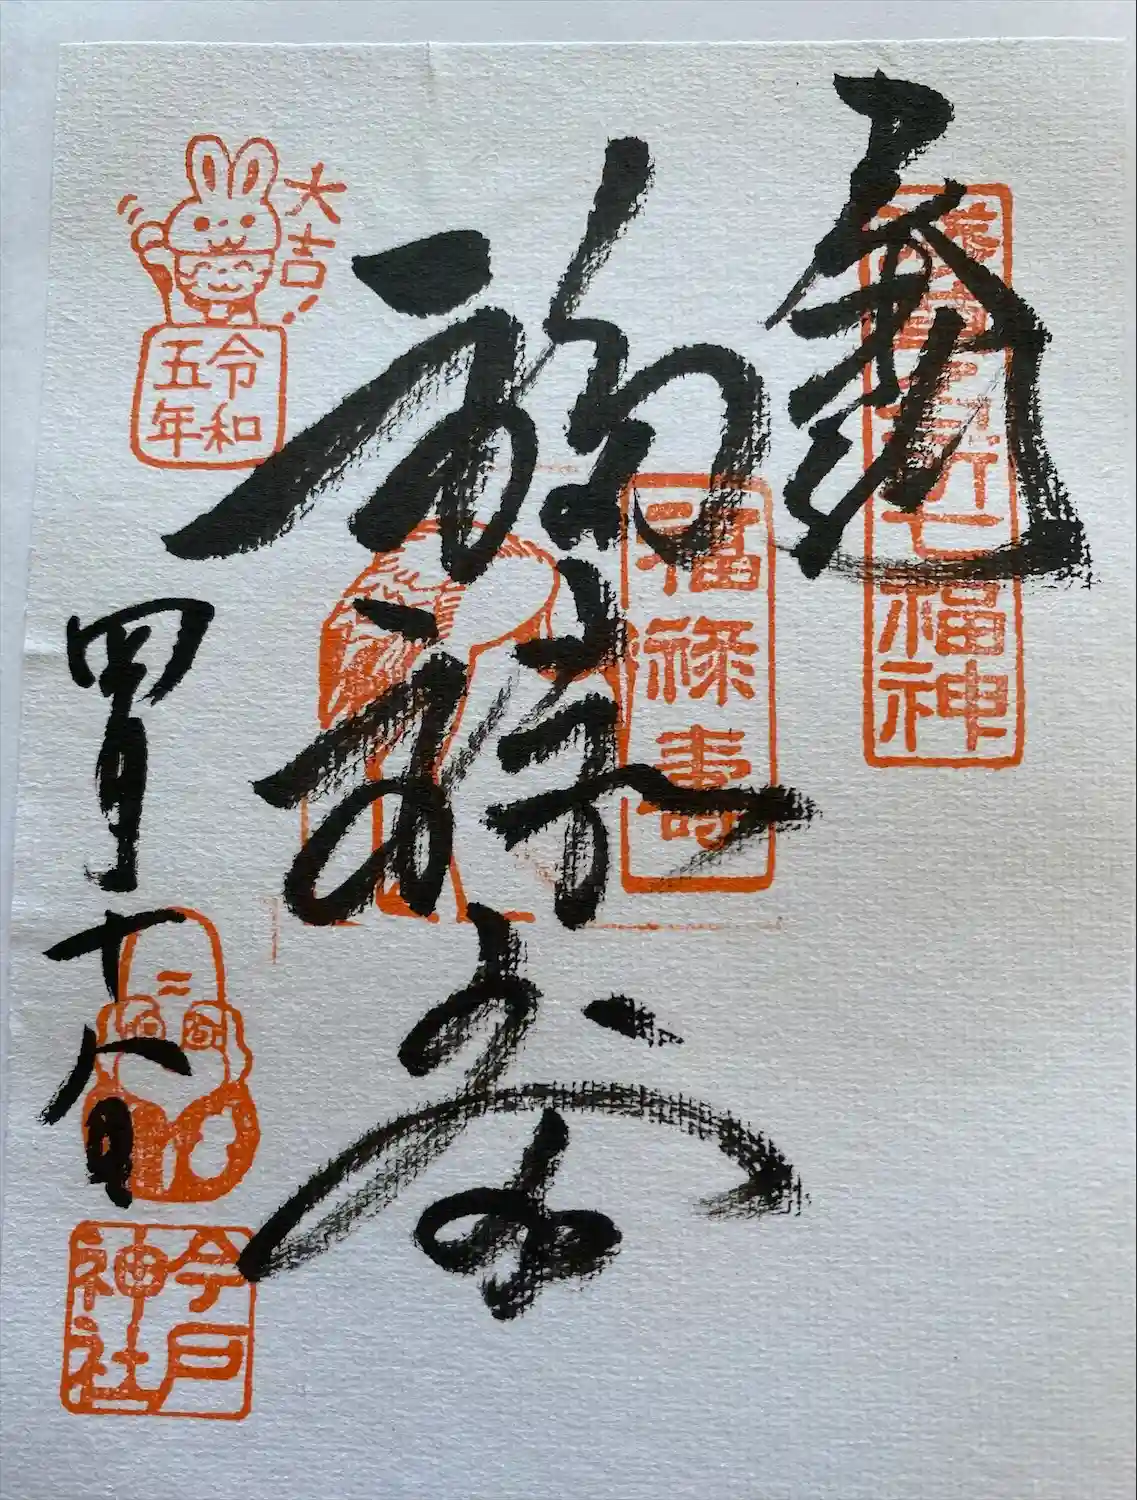 奉拝
浅草名所七福神
福禄寿
福禄壽
大吉!
令和
五年
四月十八日
今戸
神社